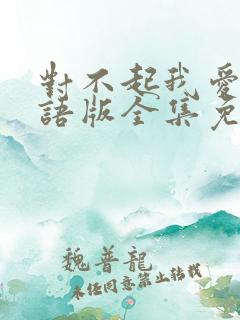 對不起我愛
語版全集免
魏普龍
未经同意禁止转载